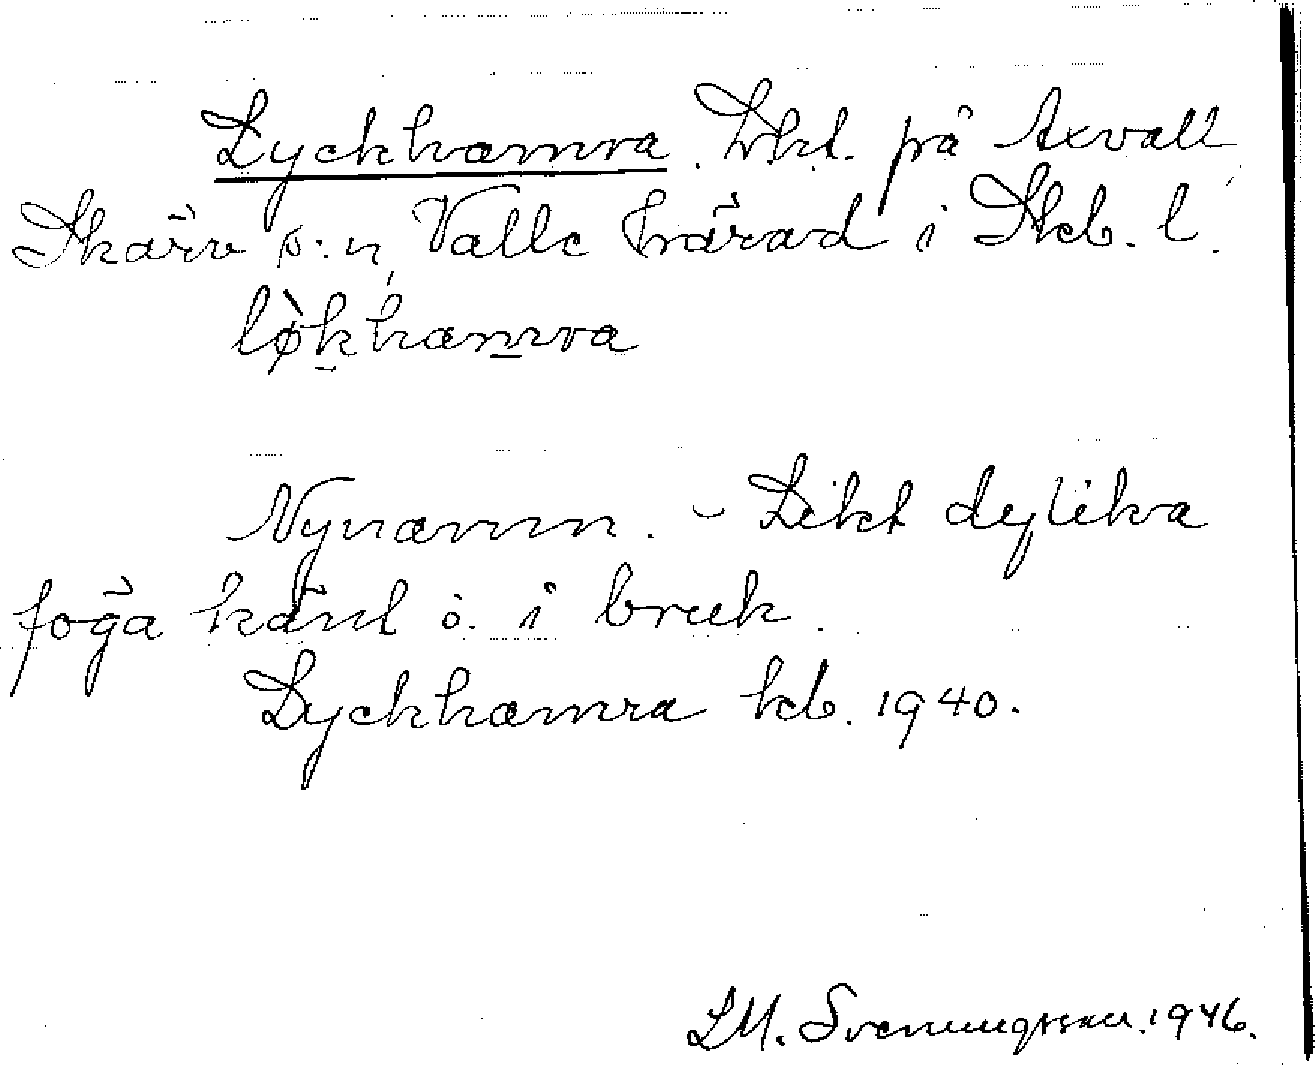 Lyckhamra. Lht. på Axvall
Skärv s:n, Valle härad i Skb. l.
lø̀khamra
Nynamn. - Likt dylika
föga känt o. i bruk.
Lyckhamra kb. 1940.
LM. Svenungsson. 1946.